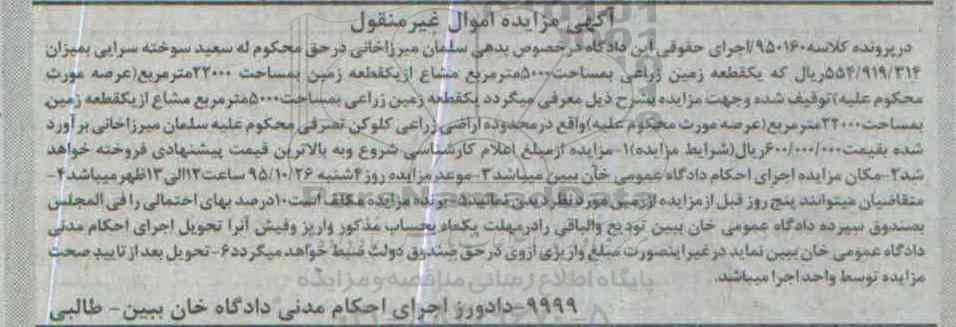 آگهی مزایده اموال غیرمنقول
درپرونده کلاسه۹۵۰۱۶۰/اجرای حقوقی این دادگاه درخصوص بدهی سلمان میرزاخانی درحق محکوم له سعید سوخته سرایی بمیزان
۵۵۴/۹۱۹/۳۱۴ریال که یکقطعه زمین زراعی بمساحت۵۰۰۰مترمربع مشاع ازیکقطعه زمین بمساحت ۲۲۰۰۰مترمربع(عرصه مورث
محکوم علیه)توقیف شده وجهت مزایده بشرح ذیل معرفی میگردد یکقطعه زمین زراعی بمساحت۵۰۰۰مترمربع مشاع ازیکقطعه زمین
بمساحت۲۲۰۰۰مترمربع(عرصه مورث محکوم علیه)واقع درمحدوده اراضی زراعی کلوکن تصرفی محکوم علیه سلمان میرزاخانی برآورد
شده بقیمت۶۰۰/۰۰۰/۰۰۰ریال(شرایط مزایده)۱-مزایده ازمبلغ اعلام کارشناسی شروع وبه بالاترین قیمت پیشنهادی فروخته خواهد
شد۲-مکان مزایده اجرای احکام دادگاه عمومی خان ببین میباشد۳-موعد مزایده روز۴شنبه ۹۵/۱۰/۲۶ ساعت۱۲الی۱۳ظهرمیباشد۴-
متقاضیان میتوانند پنج روز قبل ازمزایده اززمین مورد نظر دیدن نمائید۵-برنده مزایده مکلف است۱۰درصد بهای احتمالی را فی المجلس
بصندوق سپرده دادگاه عمومی خان ببین تودیع والباقی رادرمهلت یکماه بحساب مذکور واریز وفیش آنرا تحویل اجرای احکام مدنی
دادگاه عمومی خان ببین نماید درغیراینصورت مبلغ واریزی ازوی درحق صندوق دولت ضبط خواهد میگردد۶-تحویل بعدازتایید صحت
مزایده توسط واحداجرا میباشد.
پایگاه اطلاع رسانی مناقصه و مزایده
۹۹۹۹-دادورز اجرای احکام مدنی دادگاه خان ببین- طالبی